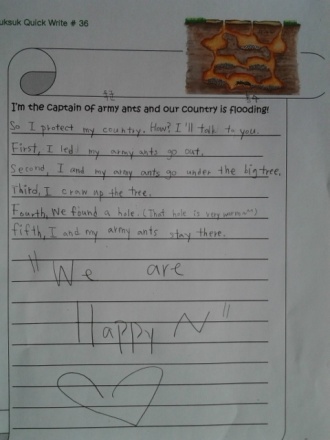 uksuk Quick Write # 36
I'm the captain of army ants and our country is flooding!
So I protect my country. How? I'll talk to you.
First, I led my army ants go out.
Second, I and my army ants go under the big tree.
Third, I craw up the tree.
Fourth, We found a hole. (That hole is very warm^^)
fifth, I and my army ants stay there.
"We are
Happy ~"